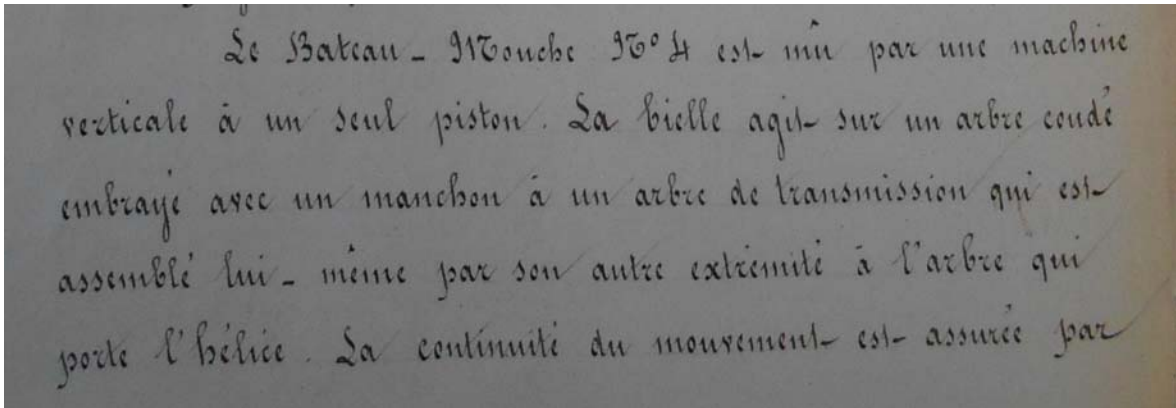 Le Bateau-Mouche N° 4 est mû par une machine
verticale à un seul piston. La bielle agit sur un arbre coudé
embrayé avec un manchon à un arbre de transmission qui est
assemblé lui-même par son autre extrémité à l'arbre qui
porte l'hélice. La continuité du mouvement est assurée par